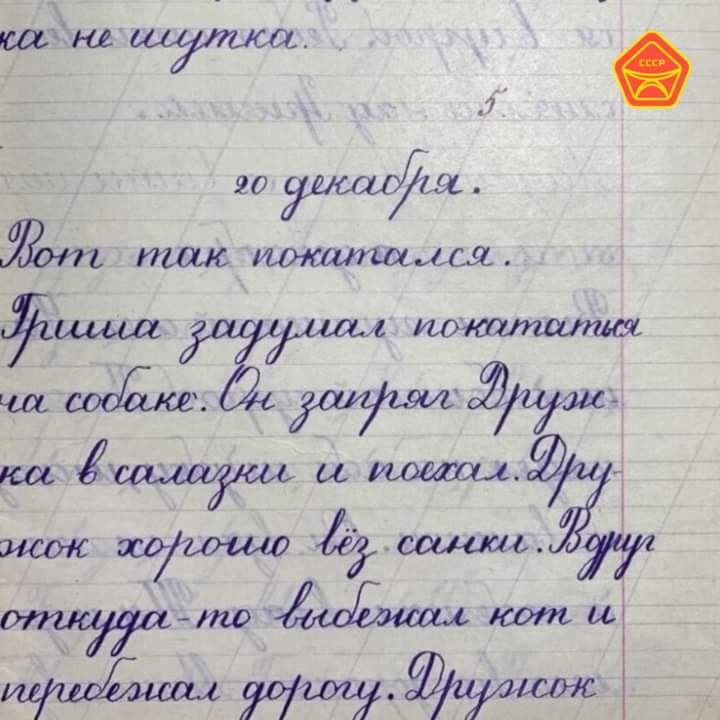 ка не шутка.
СССР
5.
20 декабря.
Вот так покатался.
Гриша задумал покататься
на собаке. Он запряг Друж-
ка в салазки и поехал. Дру-
жок хорошо вёз санки. Вдруг
откуда-то выбежал кот и
перебежал дорогу. Дружок